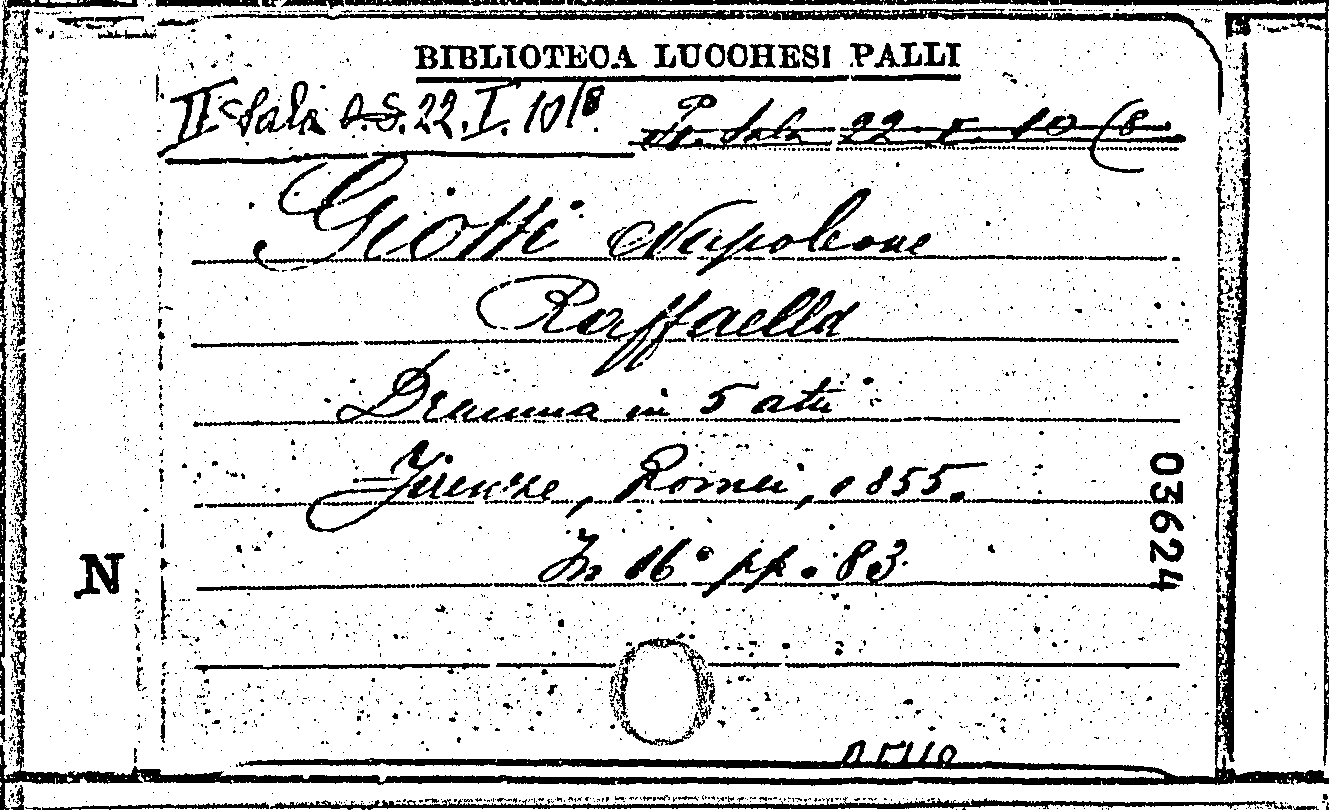 BIBLIOTECA LUCCHESI PALLI
II Sala 22. I. 10/8.
Sala 22 10 (8
Giotti Napoleone
Raffaella
Dramma in 5 atti
Firenze, Romei, 1855.
In 16° pp. 83
03624
N